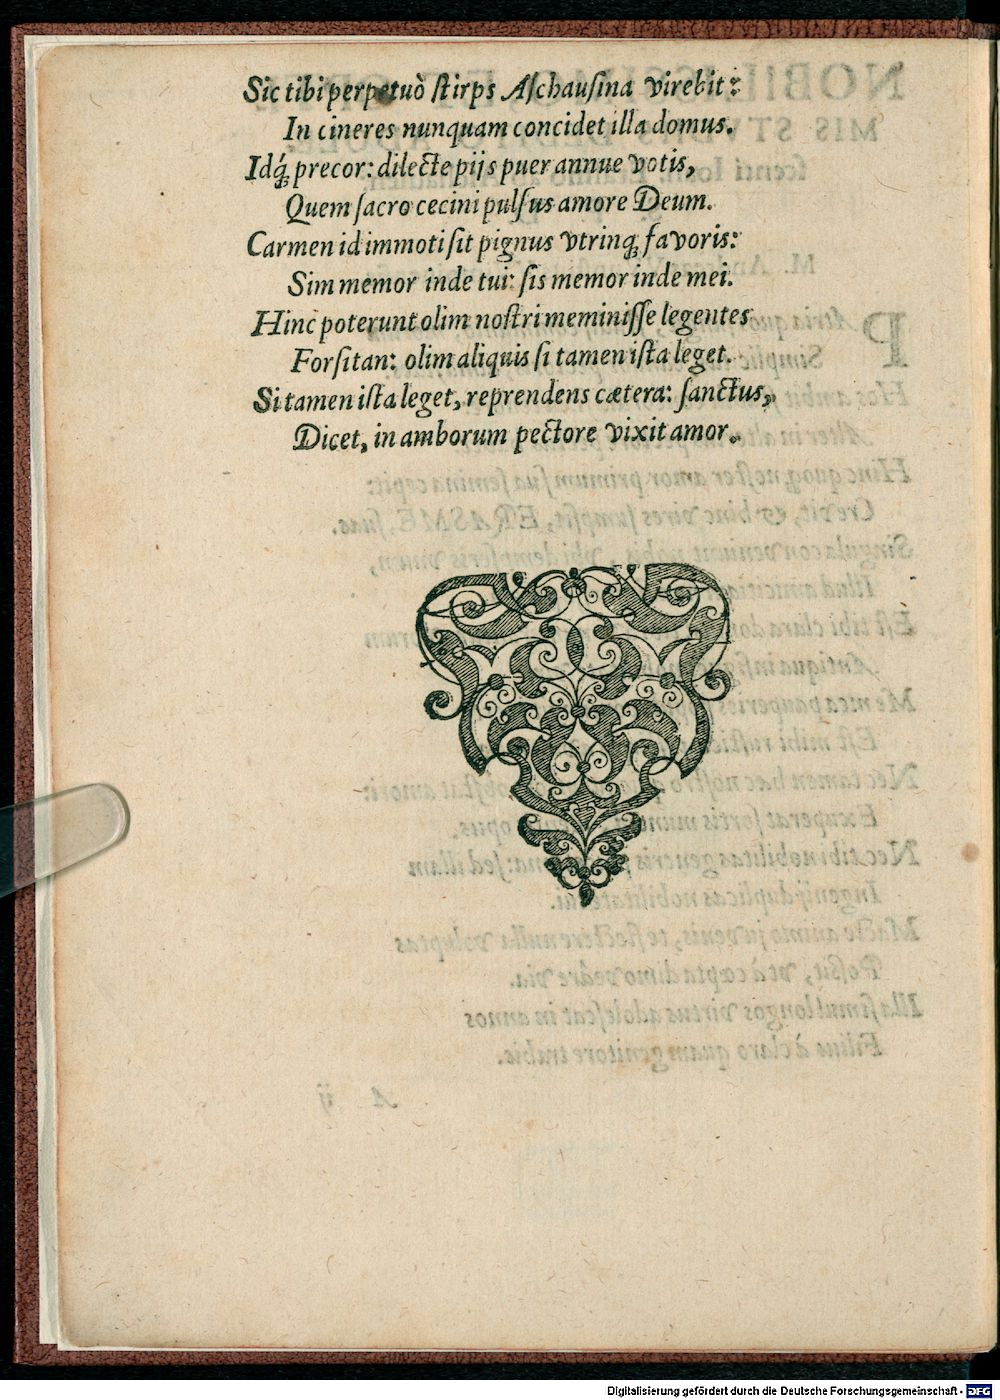 Sic tibi perpetuò stirps Aschausina virebit:
In cineres nunquam concidet illa domus.
Idq́; precor: dilecte pijs puer annue votis,
Quem sacro cecini pulsus amore Deum.
Carmen id immoti sit pignus vtrinq; favoris:
Sim memor inde tui: sis memor inde mei.
Hinc poterunt olim nostri meminisse legentes
Forsitan: olim aliquis si tamen ista leget.
Si tamen ista leget, reprendens cætera: sanctus,
Dicet, in amborum pectore vixit amor.
Digitalisierung gefördert durch die Deutsche Forschungsgemeinschaft - DFG